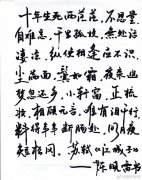 十年生死两茫茫，不思量，
自难忘，千里孤坟，无处话
凄凉，纵使相逢应不识，
尘满面，鬓如霜，夜来幽
梦忽还乡，小轩窗，正梳
妆，相顾无言，唯有泪千行，
料得年年断肠处，明月夜
短松冈。苏轼《江城子》